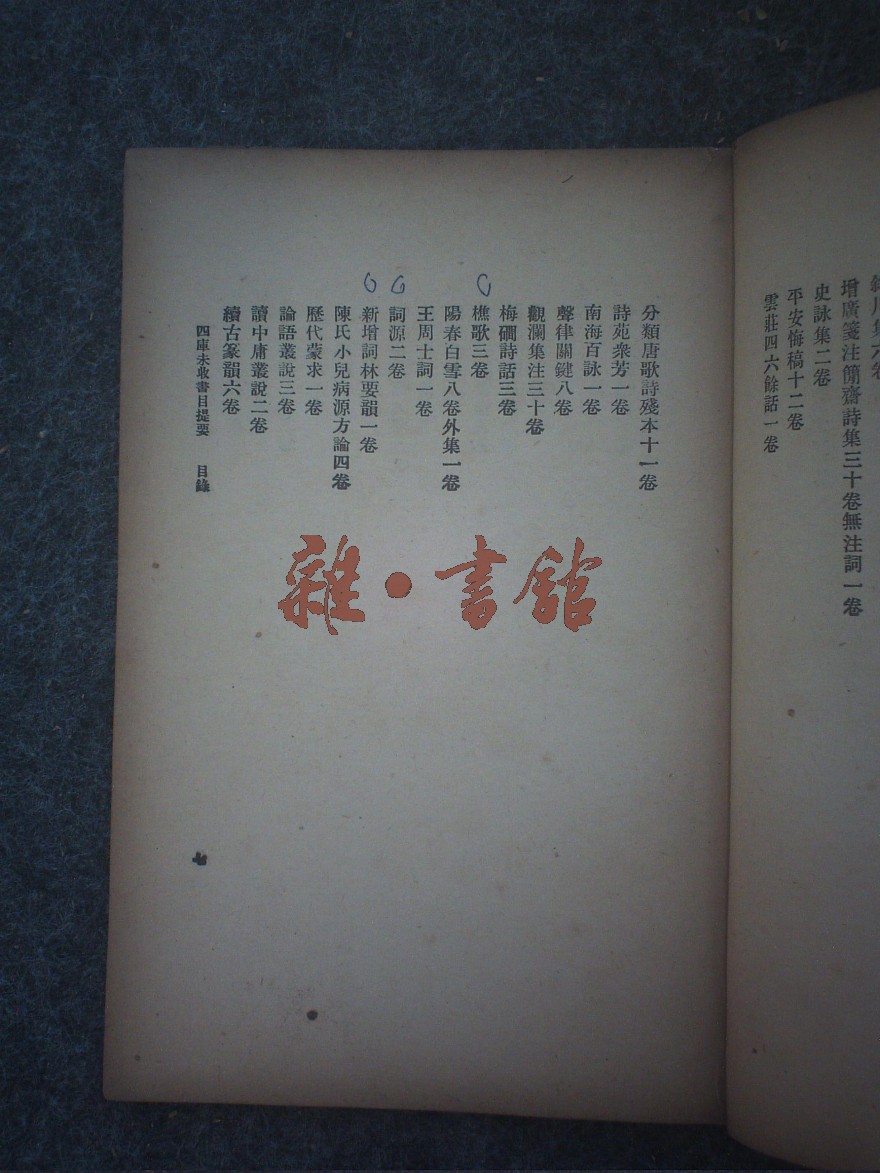 增廣箋注簡齋詩集三十卷無注詞一卷
史詠集二卷
平安悔稿十二卷
雲莊四六餘話一卷
分類唐歌詩殘本十一卷
詩苑衆芳一卷
南海百詠一卷
聲律關鍵八卷
觀瀾集注三十卷
梅磵詩話三卷
樵歌三卷
陽春白雪八卷外集一卷
王周士詞一卷
詞源二卷
新增詞林要韻一卷
陳氏小兒病源方論四卷
歷代蒙求一卷
論語叢說三卷
讀中庸叢說二卷
續古篆韻六卷
四庫未收書目提要 目錄
七
雜·書館